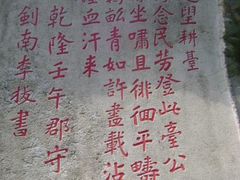 望耕臺
念民劳登此臺公
坐嘯且徘徊平疇
畝青如許盡載沾
血汗来
乾隆壬午郡守
劍南李拔書